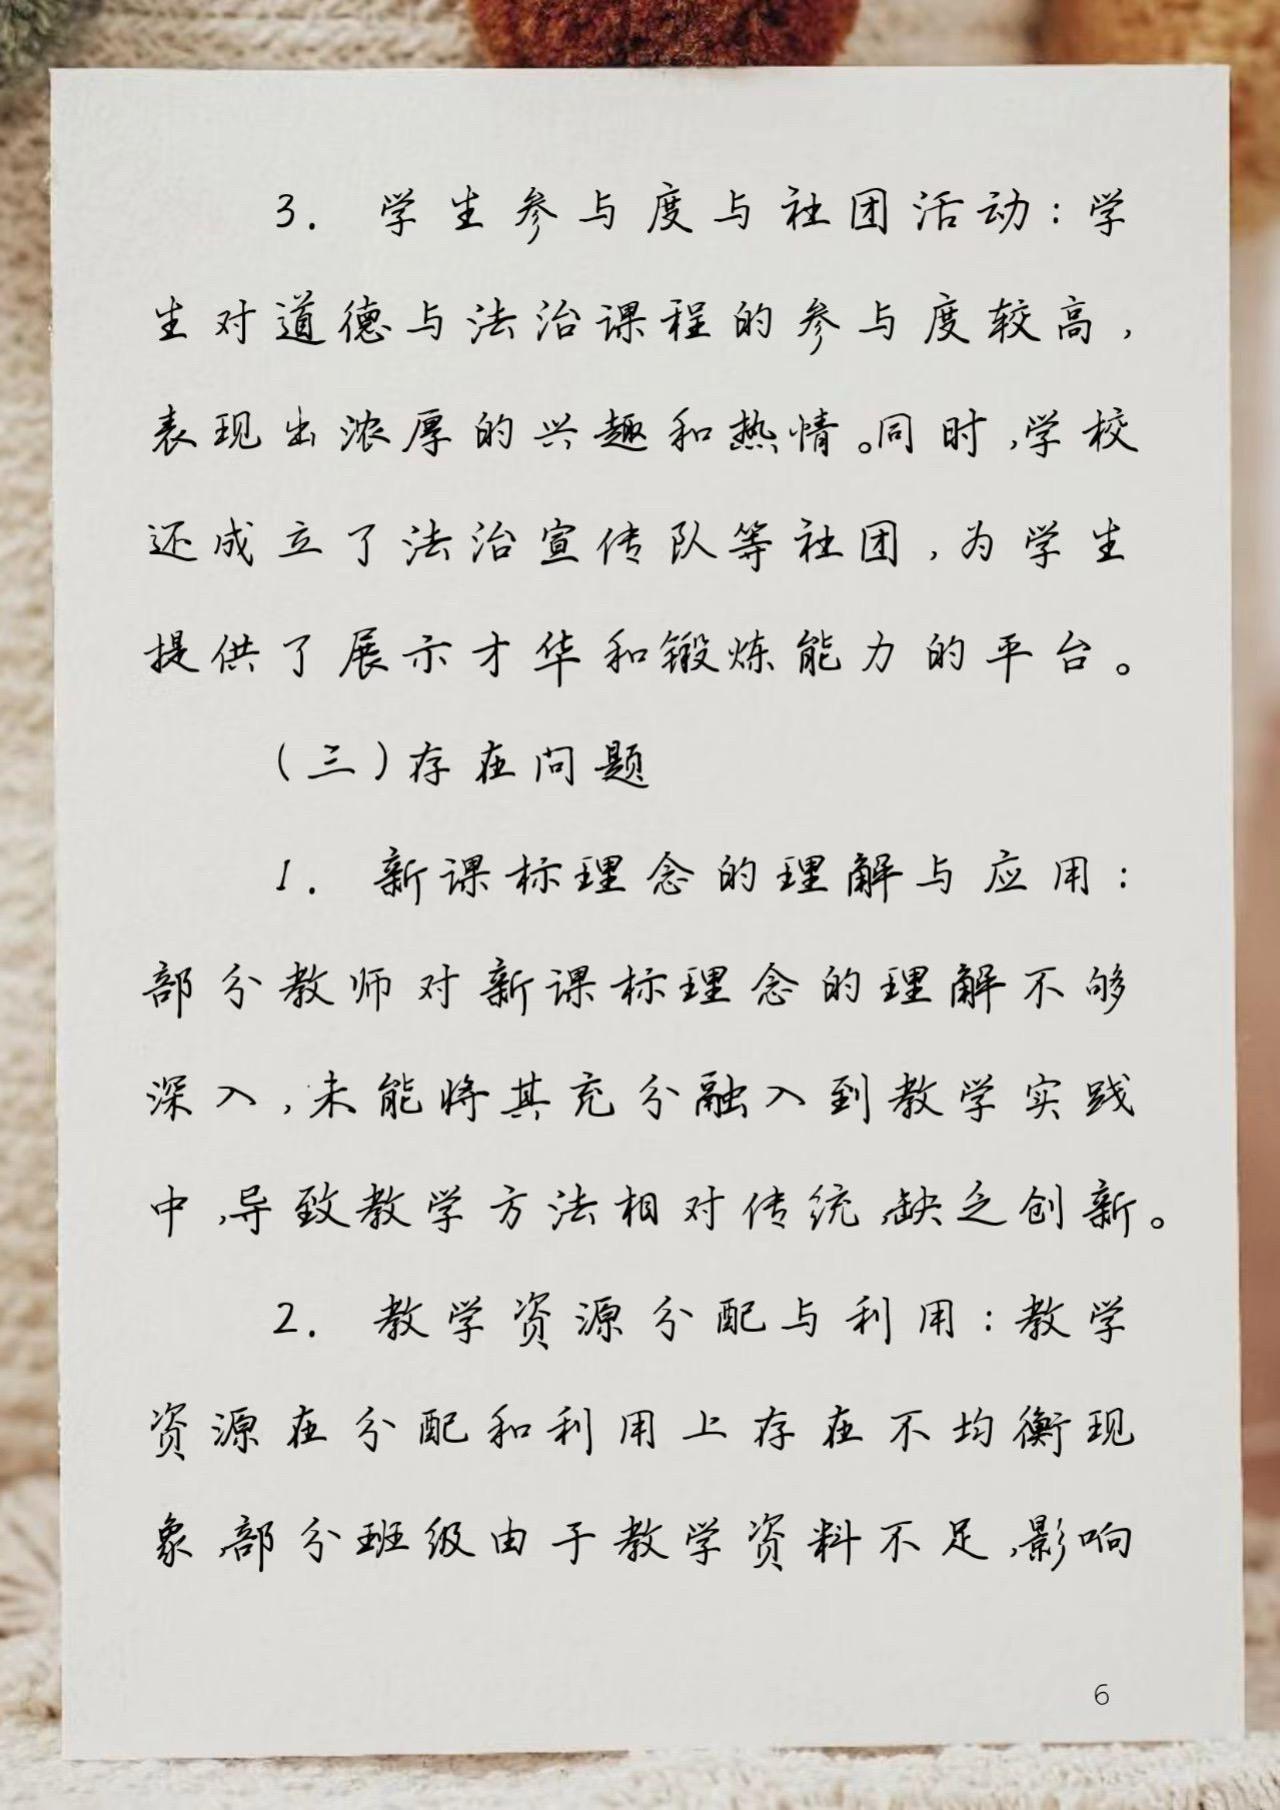 3. 学生参与度与社团活动：学
生对道德与法治课程的参与度较高，
表现出浓厚的兴趣和热情。同时，学校
还成立了法治宣传队等社团，为学生
提供了展示才华和锻炼能力的平台。
（三）存在问题
1. 新课标理念的理解与应用：
部分教师对新课标理念的理解不够
深入，未能将其充分融入到教学实践
中，导致教学方法相对传统，缺乏创新。
2. 教学资源分配与利用：教学
资源在分配和利用上存在不均衡现
象，部分班级由于教学资料不足，影响
6